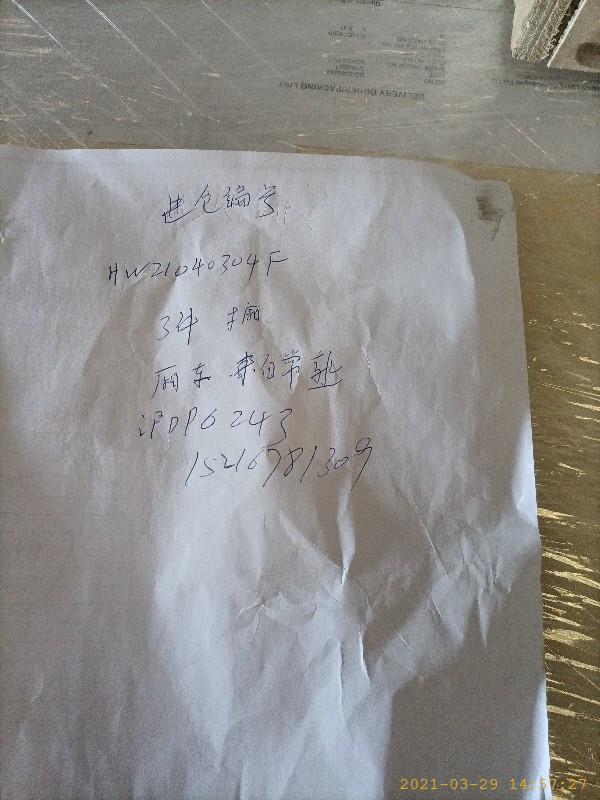 DELIVERY ORDER/PACKING LIST
进仓编号
HW21040304F
3件 木厢
厢车 来自常熟
沪DP6243
15216781309
2021-03-29 14:57:27